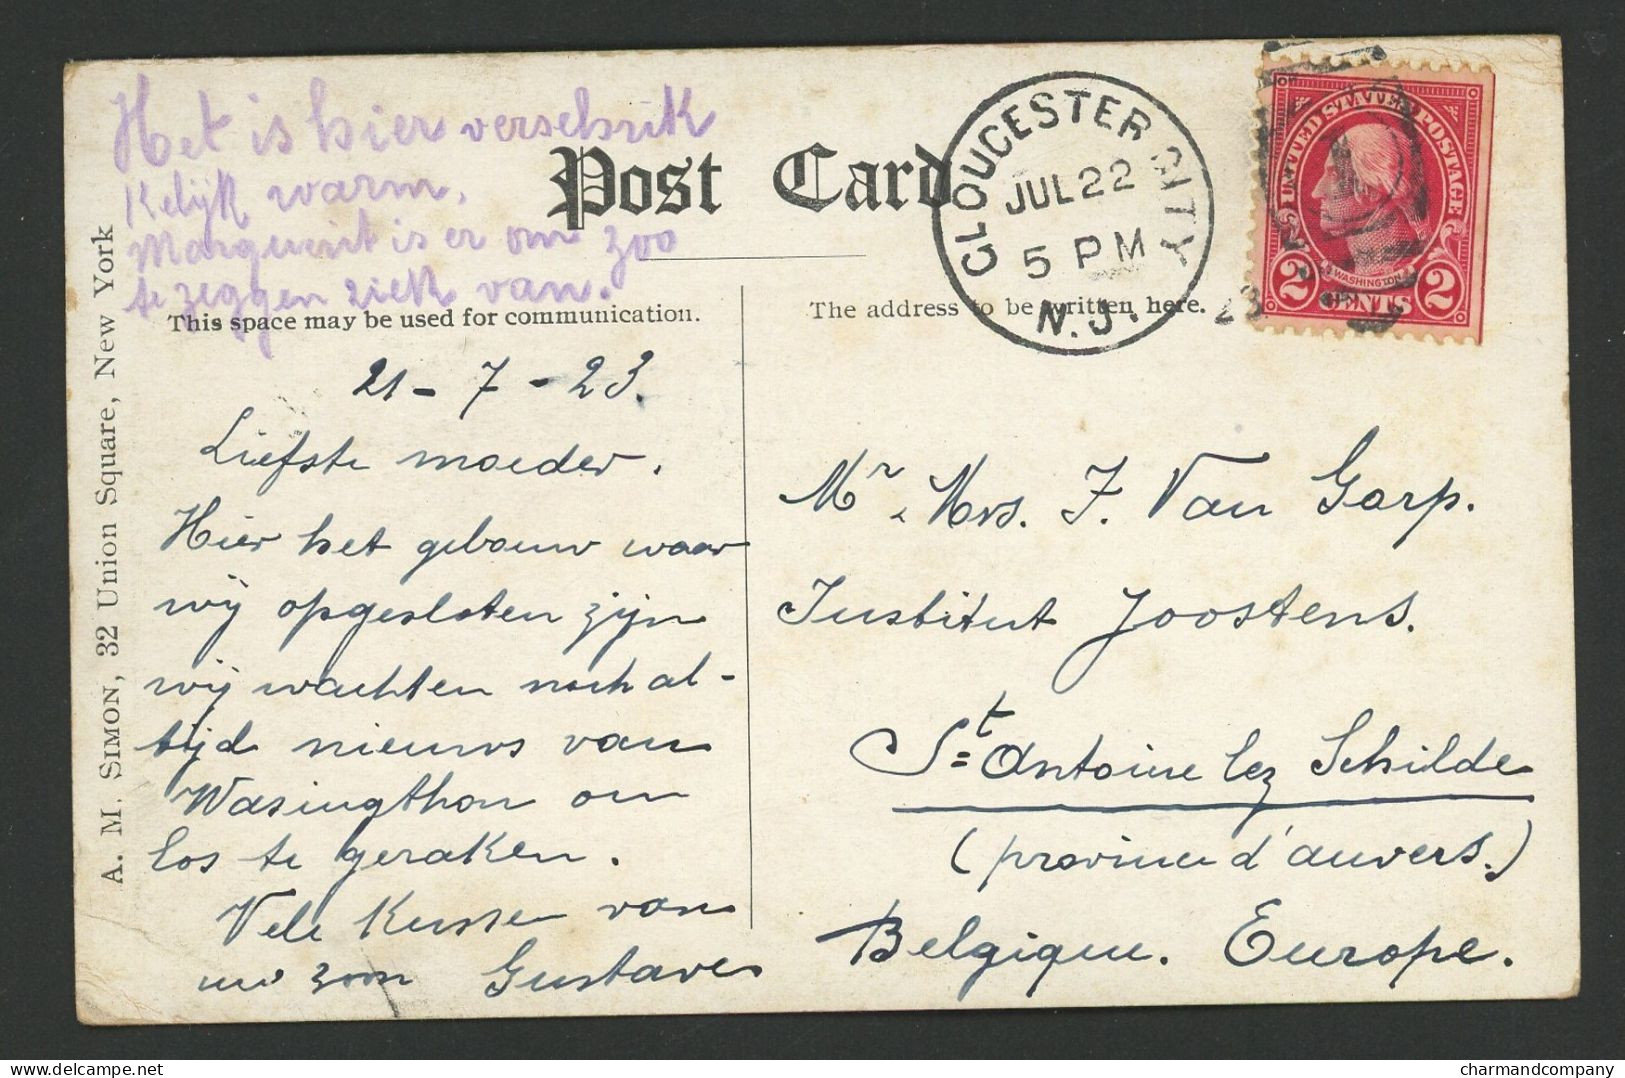 Het is hier verschrik
kelijk warm.
Marguerit is er om zoo
te zeggen ziek van.
Post Card
This space may be used for communication.
The address to be written here.
A. M. SIMON, 32 Union Square, New York
GLOUCESTER CITY
JUL 22
5 PM
N.J.
23
UNITED STATES POSTAGE
WASHINGTON
2 CENTS 2
21-7-23.
Liefste moeder.
Hier het gebouw waar
wij opgesloten zijn
wij wachten noch al-
tijd nieuws van
Wasingthon om
los te geraken.
Vele Kussen van
uw zoon Gustave
Mr & Mrs. J. Van Gorp.
Institut Joostens.
St Antoine lez Schilde
(province d'anvers.)
Belgique. Europe.
charmandcompany
www.delcampe.net